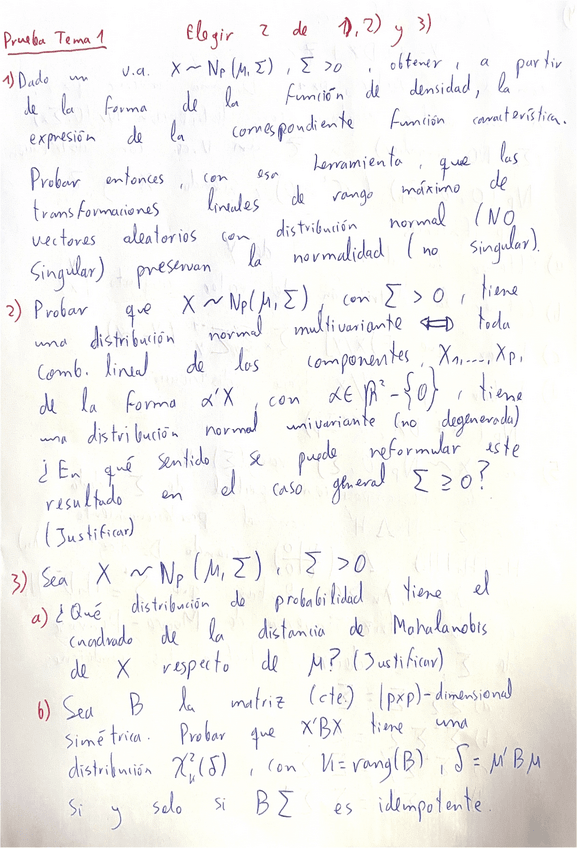 Prueba Tema 1 Elegir 2 de 1), 2) y 3)
1) Dado un v.a. X ~ Np(μ, Σ), Σ > 0, obtener, a partir
de la forma de la función de densidad, la
expresión de la correspondiente función característica.
Probar entonces, con esa herramienta, que las
transformaciones lineales de rango máximo de
vectores aleatorios con distribución normal (NO
singular) preservan la normalidad (no singular).
2) Probar que X ~ Np(μ, Σ), con Σ > 0, tiene
una distribución normal multivariante ⟺ toda
comb. lineal de las componentes, X1, ..., Xp,
de la forma α'X, con α ∈ ℝ² - {0}, tiene
una distribución normal univariante (no degenerada)
¿En qué sentido se puede reformular este
resultado en el caso general Σ ≥ 0?
(Justificar)
3) Sea X ~ Np(μ, Σ), Σ > 0
a) ¿Qué distribución de probabilidad tiene el
cuadrado de la distancia de Mahalanobis
de X respecto de μ? (Justificar)
b) Sea B la matriz (cte.) (p×p)-dimensional
simétrica. Probar que X'BX tiene una
distribución χ²μ(δ), con K=rang(B), δ = μ'Bμ
si y solo si BΣ es idempotente.